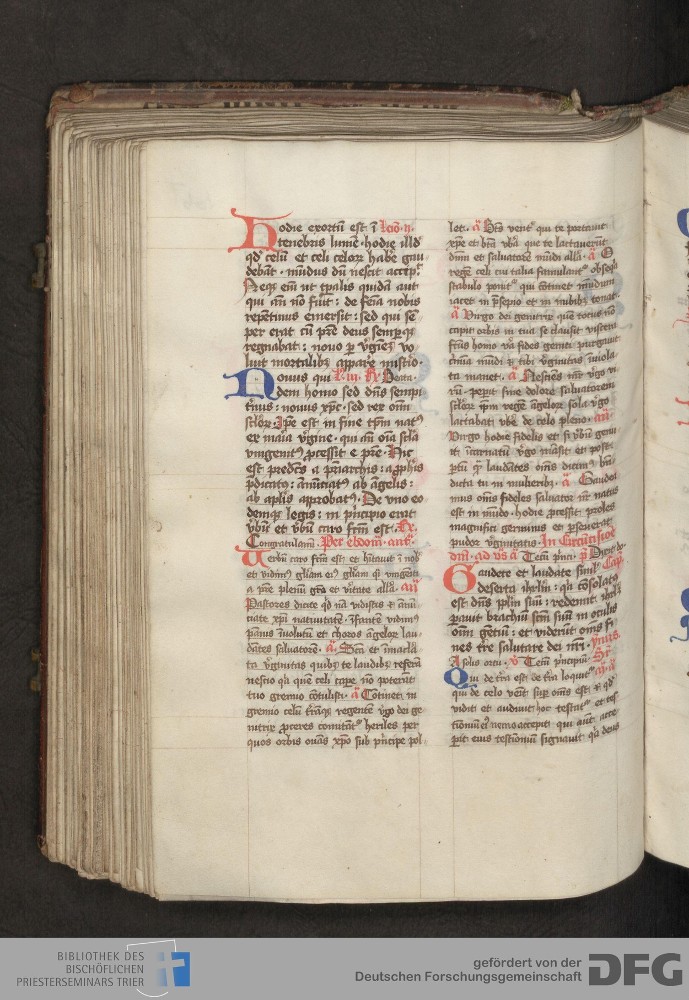 Hodie exortū est ī Lcio · ij ·
tenebris lumē · hodie illd
qd' celū et celi celoꝝ habē gau
debāt · mūdus dn̄ nescit accep'.
Neqꝫ em̄ ut tꝑalis quidā aut
qui an̄ nō fuit : de feīa nobis
repētinus emersit : sed qui sē
per erat cū pr̄e deus semꝑqꝫ
regnabat : nouo ꝑ v'gīeꝫ vo
luit mortalibꝫ apparē mistio ·
Nouus qui l · iij · R Beata ·
dem homo sed dn̄s sempi
t'nus : nouus xp̄c · sed rex om̄i
sc̄loꝝ · Ip̄e est in fine tp̄m nat9
ex maīa v'gine · qui an̄ oīa sc̄la
vnigenit9 ꝓcessit e pr̄e · Hic
est predc̄s a pr̄iarchis : a ꝓph̄is
p̄dicat9 : an̄ūtiat9 ab āgelis :
ab apl̄is aꝓbat9 · De vno eo
demqꝫ legis : in p'ncipio erat
v'bū et v'bū caro fcm̄ est · R
Congratulam̄ · Per ebdom̄ · ants̄ ·
Uerbū caro fcm̄ est et hītauit ī nob'
et vidim9 gl̄iam ei9 gl̄iam q̄i vnigeīti
a pr̄e plenū gr̄a et v'itate all̄a · añ
Pastores dicite qd' nā vidistis et an̄ū
tiate xp̄i natiuitatē · Īfantē vidim9
pānis īuolutū et choros āgeloꝝ lau
dātes saluatorē · a Scā et īmacl̄a
ta v'ginitas quibꝫ te laudibꝫ referā
nescio q'a quē celi capē nō poterāt
tuo gremio ɔtulisti · a Cōtinet in
gremio celū t'rāqꝫ regentē v'go dei ge
nitrix ꝓceres comitāt' heriles per
quos orbis ouās xp̄o sub p'ncipe pol ·
let · a Bt̄us vent' qui te portauit
xp̄e et bt̄a vb'a que te lactauerūt
dn̄m et saluatorē mūdi all̄a · a O
regē celi cui talia famulant' obseq'a
stabulo ponit' qui ɔtinet mūdum
iacet in p̄sepio et in nubibꝫ tonat ·
a Virgo dei genitrix quē totus nō
capit orbis in tua se clausit viscera
fcūs homo v'a fides geniti purgauit
c'mīa mūdi et tibi v'ginitas īuiola
ta manet · a Nesciēs mr̄ v'go vi
rū · peꝑit sine dolore saluatorem
sc̄loꝝ ip̄m regē āgeloꝝ sola v'go
lactabat vbē de celo pleno · añ
Virgo hodie fidelis et si v'bū genu
it īcarnatū v'go māsit et post
ꝑtū qꝫ laudātes om̄s dicim9 bn̄
dicta tu in mulieribꝫ · a Gaudea
mus om̄s fideles saluator nr̄ natus
est in mūdo · hodie ꝓcessit proles
magnifici germinis et ꝑseuerat
pudor v'ginitatis · In Circūcisiōe
dnī · ad vs̄ a Tecū p'nci · p Dixit do ·
Gaudete et laudate simul Cap̄
deserta ihrl̄m : q'a ɔsolat9
est dn̄s ppl̄m suū : redemit ihrl̄m
ꝑauit brachiū scm̄ suū in oculis
om̄i gētiū : et viderūt om̄s fi
nes t're salutare dei nr̄i · ymis
A solis ortu · v Tecū p'ncipiū · Sr̄
Qui de t'ra est de t'ra loquit' añ
qui de celo venit sup om̄s est et qd'
vidit et audiuit hoc testat' et tes
timoniū ei9 nemo accepit qui aut̄ acce
ꝑat eius testīoniū signauit q'a deus
BIBLIOTHEK DES
BISCHÖFLICHEN
PRIESTERSEMINARS TRIER
gefördert von der
Deutschen Forschungsgemeinschaft
DFG